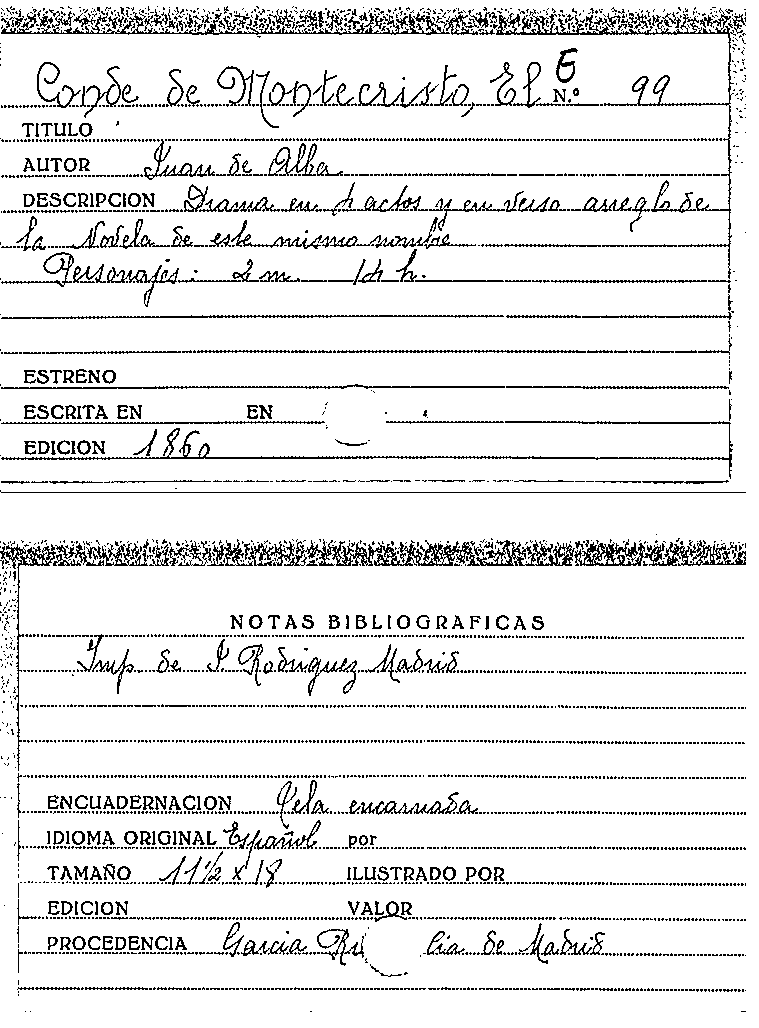 Conde de Montecristo, El E N.º 99
TITULO
AUTOR Juan de Alba
DESCRIPCION Drama en 4 actos y en verso arreglo de
la Novela de este mismo nombre
Personajes: 2 m. 14 h.
ESTRENO
ESCRITA EN EN
EDICION 1860
NOTAS BIBLIOGRAFICAS
Imp. de Rodriguez Madrid
ENCUADERNACION Tela encarnada
IDIOMA ORIGINAL Español por
TAMAÑO 11½ x 18 ILUSTRADO POR
EDICION VALOR
PROCEDENCIA Garcia de Madrid